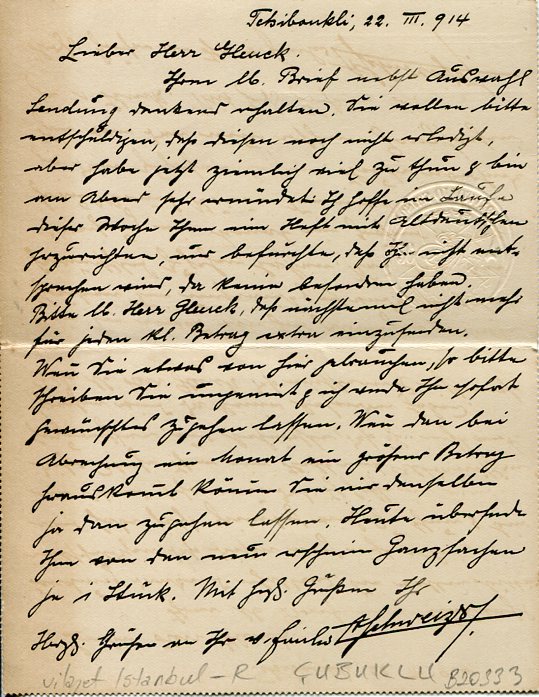 Tchiboukli, 22. III. 914
Lieber Herr Gleuck.
Ihren lb. Brief nebst Auswahl
Sendung dankend erhalten. Sie wollen bitte
entschuldigen, daß diesen noch nicht erledigt,
aber habe jetzt ziemlich viel zu thun & bin
am Abend sehr ermüdet. Ich hoffe im Laufe
dieser Woche Ihnen ein Heft mit Altdeutschen
herzurichten, nur befürchte, daß Ihn nicht ent-
sprechen wird, da keine besonderen haben.
Bitte lb. Herr Gleuck, daß nächstemal nicht mehr
für jeden kl. Betrag extra einzusenden.
Wen Sie etwas von hier gebrauchen, so bitte
schreiben Sie ungeniert & ich werde Ihn sofort
gewünschtes zugehen lassen. Wen dan bei
Abrechnung ein Monat ein größerer Betrag
herauskomt könen Sie mir denselben
ja dan zugehen lassen. Heute übersende
Ihnen von den neu erschienen Ganzsachen
je 1 Stück. Mit herzl. Grüßen Ihr
Herzl. Grüßen an Ihr v. Schweizer.
vilajet Istanbul - R ÇUBUKLU B20333